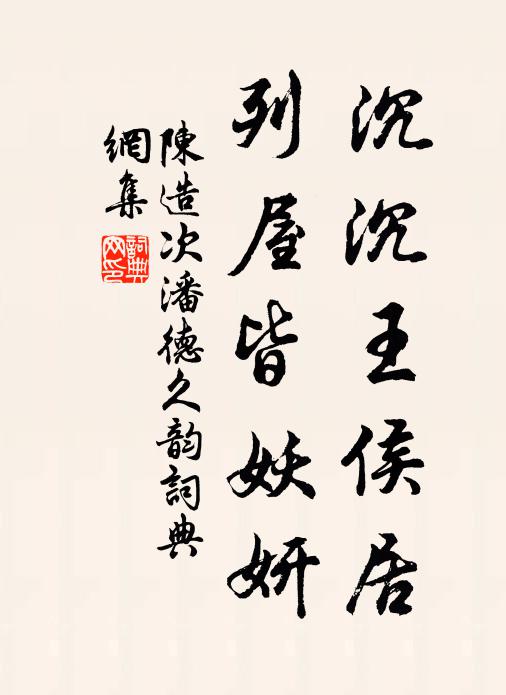 沉沉王侯居
列屋皆妖妍
陳造次潘德久韵詞典
網集
詞典網印